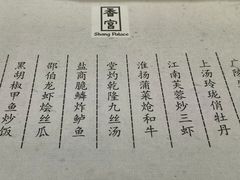 香宫
Shang Palace
上汤玲珑俏牡丹
江南芙蓉炒三虾
淮扬蒲菜炝和牛
堂灼乾隆九丝汤
盐商脆鳞炸鲈鱼
邵伯龙虾烩丝瓜
黑胡椒甲鱼炒饭